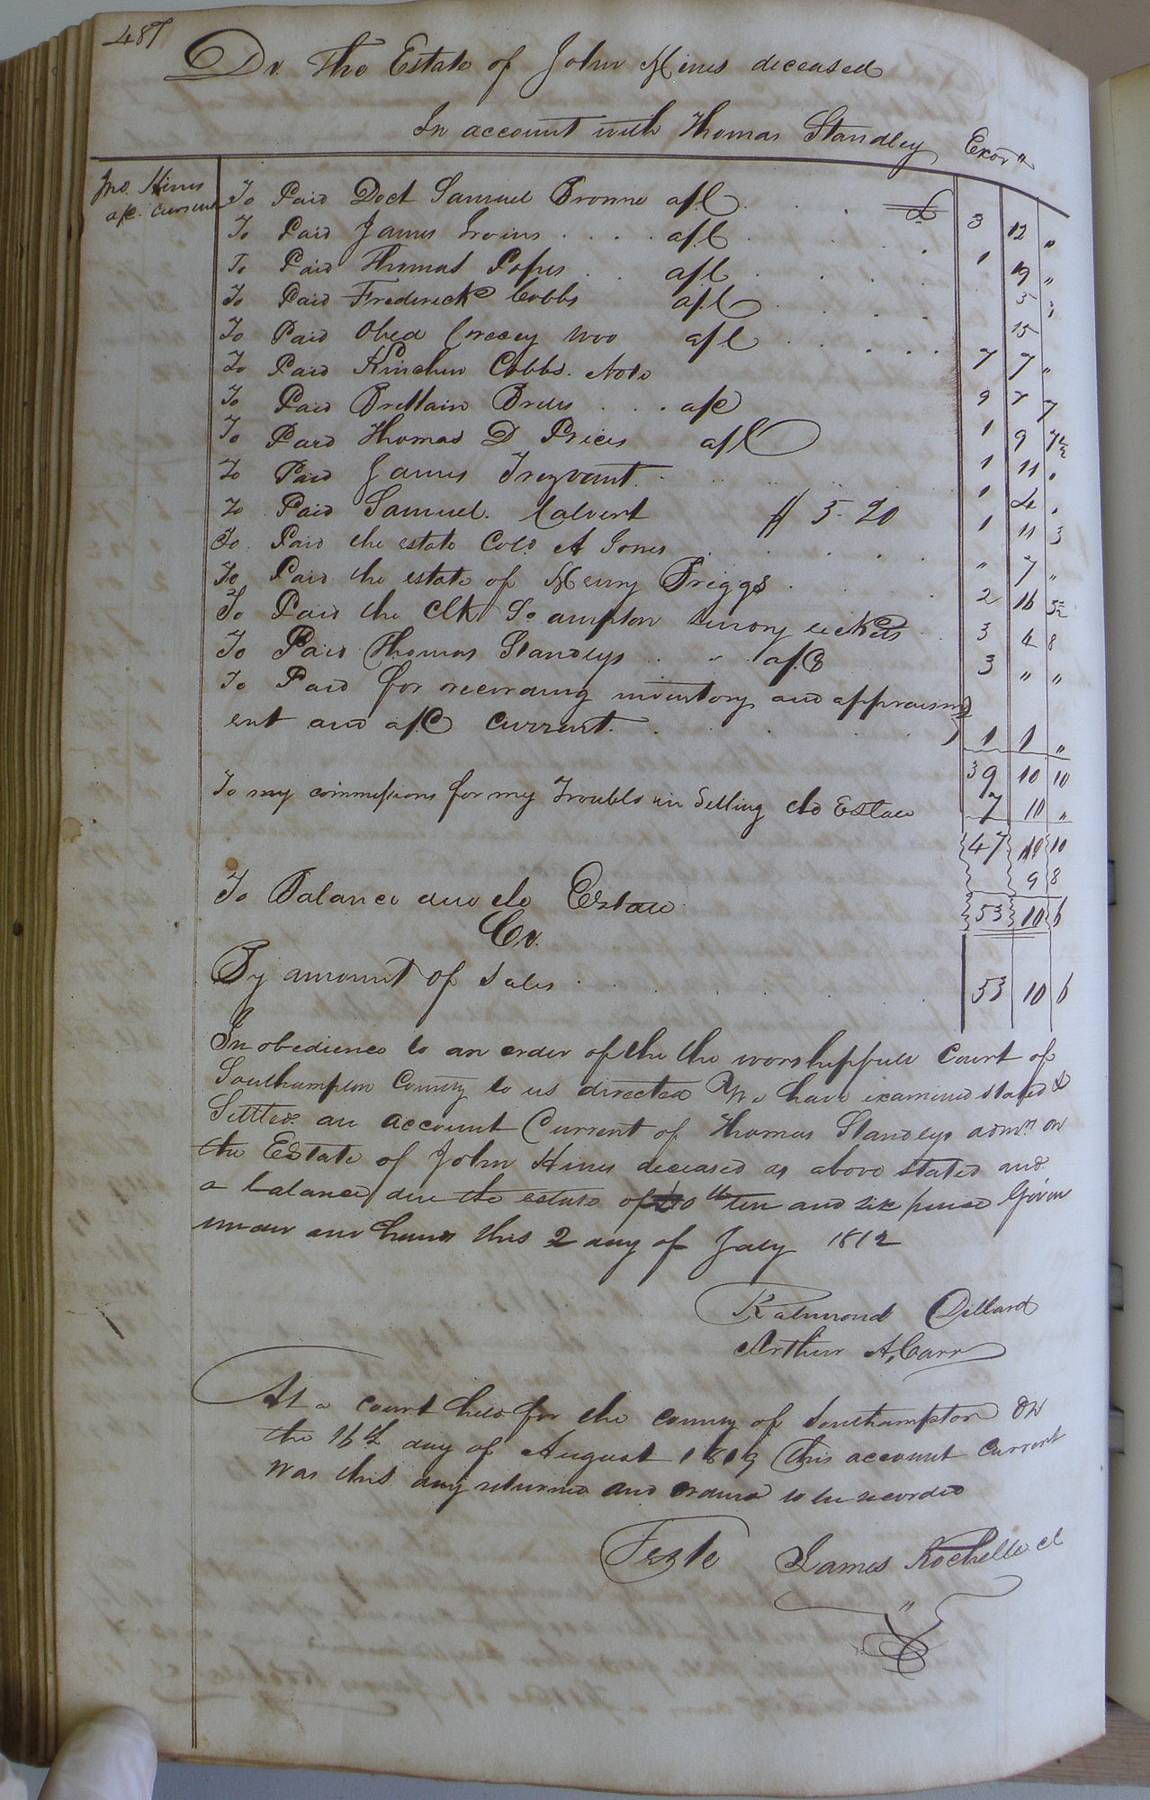 487
Dr. The Estate of John Hines deceased
In account with Thomas Standley Exor"
Jno. Hines
a/c. Current
To Paid Doct Samuel Browne a/c £ 3 12 "
To Paid James Irvins a/c 1 19 "
To Paid Thomas Popes a/c 5
To Paid Frederick Cobbs a/c 15
To Paid Obed a/c 7 7 "
To Paid Kinchin Cobbs. Note 9 7 7
To Paid Brittain Brills a/c 1 9 7½
To Paid Thomas D Prices a/c 1 11
To Paid James Trezvant 1 4
To Paid Samuel. Calvert $ 5-20 1 11 3
To Paid the estate Colo. A Jones " 7 "
To Paid the estate of Henry Briggs 2 16 5½
To Paid the Clk So ampton tickets 3 4 8
To Paid Thomas Standleys a/c 3 " "
To Paid for recording inventory and appraism
ent and a/c Current. 1 1 "
39 10 10
To my commissions for my Trouble in Selling do Estate 7 10 "
47 10
9 8
To Balance due do Estate 53 10 6
Cr.
By amount of sales 53 10 6
In obedience to an order of the the worshipfull Court of
Southampton County to us directed We have examined stated &
Settled an account Current of Thomas Standleys admr. on
the Estate of John Hines deceased as above stated and
a balance due the estate of ten and six pence Given
under our hands this 2 day of July 1812
Dillard
Arthur A. Carr
At a court held for the county of Southampton on
the 16th day of August 1819 this account current
was this day returned and ordered to be recorded
Teste James Rochelle cl